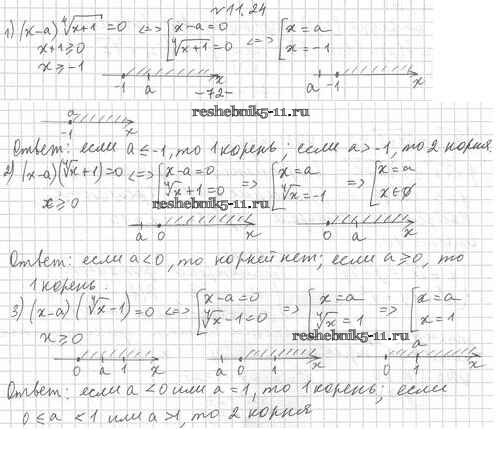 №11.24
1) (x-a) ∜(x+1) = 0 <=> [x-a=0 <=> [x=a
x+1≥0 ∜(x+1) = 0 x=-1
x≥-1
-1 a x a -1 x
-72-
reshebnik5-11.ru
a
-1 x
Ответ: если a≤-1, то 1 корень; если a>-1, то 2 корня
2) (x-a)(∜x+1)=0 <=> [x-a=0 => [x=a => [x=a
x≥0 ∜x+1=0 ∜x=-1 x∈∅
reshebnik5-11.ru
a 0 x 0 a x
Ответ: если a<0, то корней нет; если a≥0, то
1 корень.
3) (x-a)(∜x-1)=0 <=> [x-a=0 => [x=a => [x=a
x≥0 ∜x-1=0 ∜x=1 x=1
reshebnik5-11.ru
a
0 a 1 x a 0 1 x 0 1 x
Ответ: если a<0 или a=1, то 1 корень; если
0≤a<1 или a>1, то 2 корня